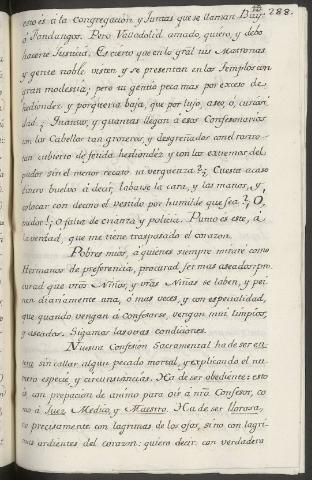 288.
esto és á la Congregación, y Juntas que se llaman Bay-
ó Fandangos. Pero Valladolid amado, quiero, y debo
hacerte Justicia. Es cierto que en lo gral tus Matronas
y gente noble visten, y se presentan en los Templos con
gran modestia; pero tu gente peca mas por exceso de
hediondéz y porqueria baja, que por lujo, aseo, ó, curiosi-
dad. ¿ Quantas, y quantas llegan á esos Confesonarios
con los Cabellos tan groseros, y desgreñados con el rostro
tan cubierto de fetida hediondéz y con los extremos del
pudor sin el menor recato ni verguenza?¿ Cuesta acaso
dinero buelvo á decir, labarse la cara, y las manos, y
colocar con decoro el vestido por humilde que sea?¿ O,
pudor!¡ O falta de crianza y policia. Punto es este, á
la verdad, que me tiene traspasado el corazon.
Pobres mios, á quienes siempre miraré como
Hermanos de preferencia, procurad ser mas aseados: pro-
curad que vros Niños, y vras Niñas se laben, y pei-
nen diariamente una, ó mas veces, y con especialidad,
que quando vengan á confesarse, vengan mui limpios,
y aseados. Sigamos las otras condiciones.
Nuestra Confesión Sacramental ha de ser en-
tera sin callar algun pecado mortal, y explicando el nu-
mero especie, y circunstancias. Ha de ser obediente: esto
és con prepacion de animo para oir á nro Confesor, co-
mo á Juez Medico, y Maestro. Ha de ser llorosa,
no precisamente con lagrimas de los ojos, sino con lagri-
mas ardientes del corazon: quiero decir con verdadera